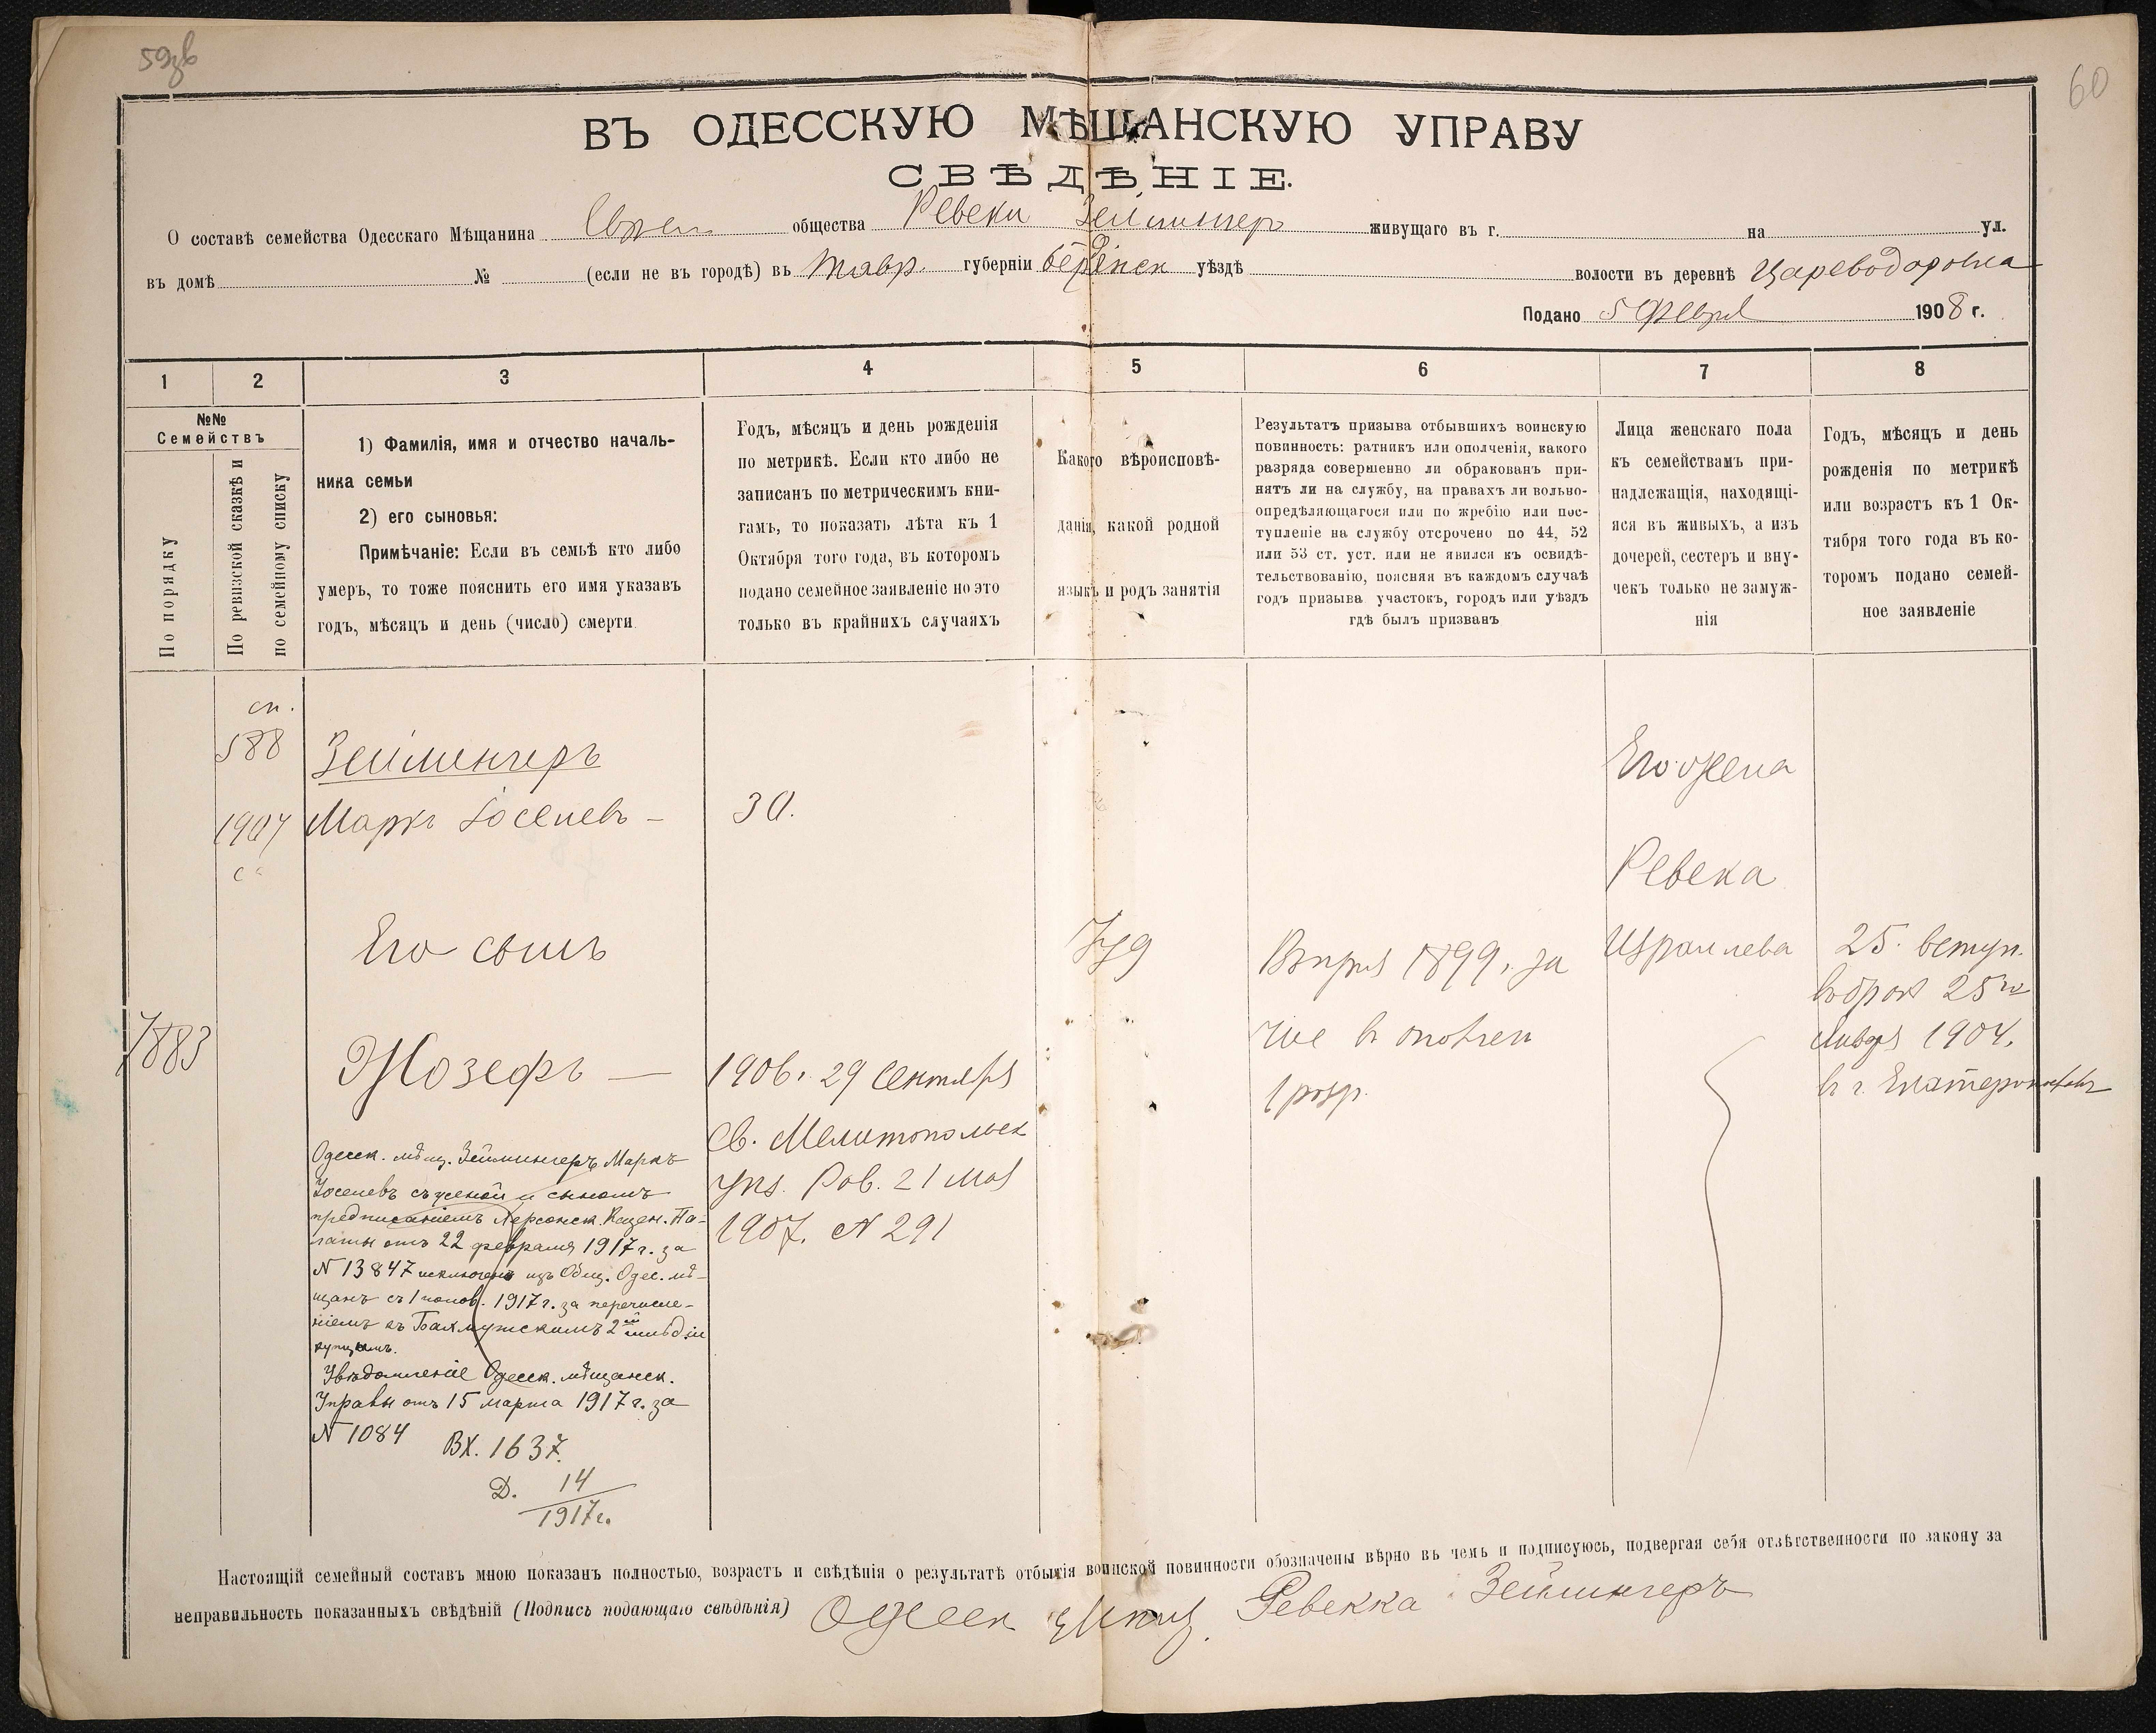 59зв
60
ВЪ ОДЕССКУЮ МѢЩАНСКУЮ УПРАВУ
СВѢДѢНІЕ.
О составѣ семейства Одесскаго Мѣщанина Еврей общества Ревеки Зейлингеръ живущаго въ г. на ул.
въ домѣ № (если не въ городѣ) въ Тавр. губерніи Бердянск уѣздѣ волости въ деревнѣ
Подано 5 Феврл 1908 г.
1 2 3 4 5 6 7 8
№№ Семействъ
По порядку
По ревизской сказкѣ и
по семейному списку
1) Фамилія, имя и отчество началь-
ника семьи
2) его сыновья:
Примѣчаніе: Если въ семьѣ кто либо
умеръ, то тоже пояснить его имя указавъ
годъ, мѣсяцъ и день (число) смерти
Годъ, мѣсяцъ и день рожденія
по метрикѣ. Если кто либо не
записанъ по метрическимъ кни-
гамъ, то показать лѣта къ 1
Октября того года, въ которомъ
подано семейное заявленіе но это
только въ крайнихъ случаяхъ
Какого вѣроисповѣ-
данія, какой родной
языкъ и родъ занятія
Результатъ призыва отбывшихъ воинскую
повинность: ратникъ или ополченія, какого
разряда совершенно ли обракованъ при-
нятъ ли на службу, на правахъ ли вольно-
опредѣляющагося или по жребію или пос-
тупленіе на службу отсрочено по 44, 52
или 53 ст. уст. или не явился къ освидѣ-
тельствованію, поясняя въ каждомъ случаѣ
годъ призыва участокъ, городъ или уѣздъ
гдѣ былъ призванъ
Лица женскаго пола
къ семействамъ при-
надлежащія, находящі-
яся въ живыхъ, а изъ
дочерей, сестеръ и вну-
чекъ только не замуж-
нія
Годъ, мѣсяцъ и день
рожденія по метрикѣ
или возрастъ къ 1 Ок-
тября того года въ ко-
торомъ подано семей-
ное заявленіе
сп.
588
1907
Зейлингеръ
Маркъ Іоселевъ —
30.
Его сынъ
7883
Жозефъ —
1906 г. 29 Сентября
Св. Мелитопольск
Рав. 21 Мая
1907. N 291
Іуд
Въ приз 1899 г. за
чис в ополчен
1 разр.
Его жена
Ревека
Израилева
25. вступ.
въ брак 25го
Января 1904.
в г. Екатеринослав
Одесск. мѣщ. Зейлингеръ Маркъ
Іоселевъ съ женой и сыномъ
предписаніемъ Херсонск. Казен. Па-
латы отъ 22 февраля 1917 г. за
N 13847 исключенъ изъ Общ. Одес. мѣ-
щанъ съ 1 полов. 1917 г. за перечисле-
ніемъ къ Бахмутскимъ 2ой гильдіи
купцамъ.
Увѣдомленіе Одесск. мѣщанск.
Управы отъ 15 марта 1917 г. за
N 1084 ВХ. 1637.
Д. 14
1917 г.
Настоящій семейный составъ мною показанъ полностью, возрастъ и свѣдѣнія о результатѣ отбытія воинской повинности обозначены вѣрно въ чемъ и подписуюсь, подвергая себя отвѣтственности по закону за
неправильность показанныхъ свѣдѣній (Подпись подающаго свѣдѣнія) Ревекка Зейлингеръ